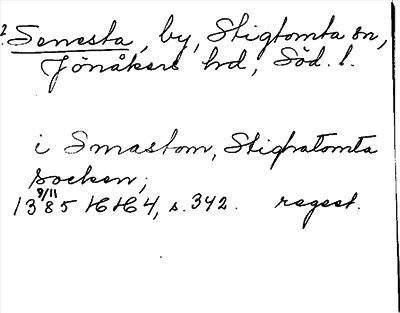 ? Senesta, by, Stigtomta sn,
Jönåkers hd, Söd. l.
i Smastom, Stighatomta
socken;
1385 9/11 HH4, s. 342. regest.